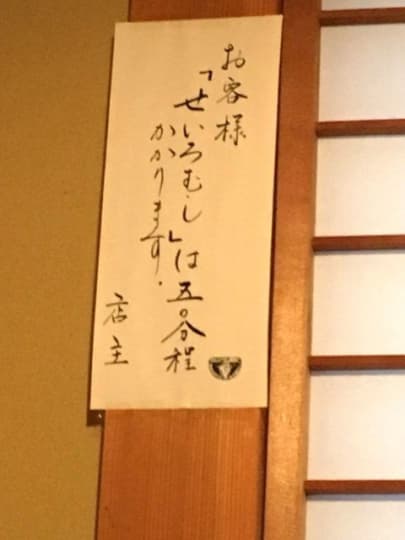 お客様
「せいろむし」は五〇分程
かかります.
店主